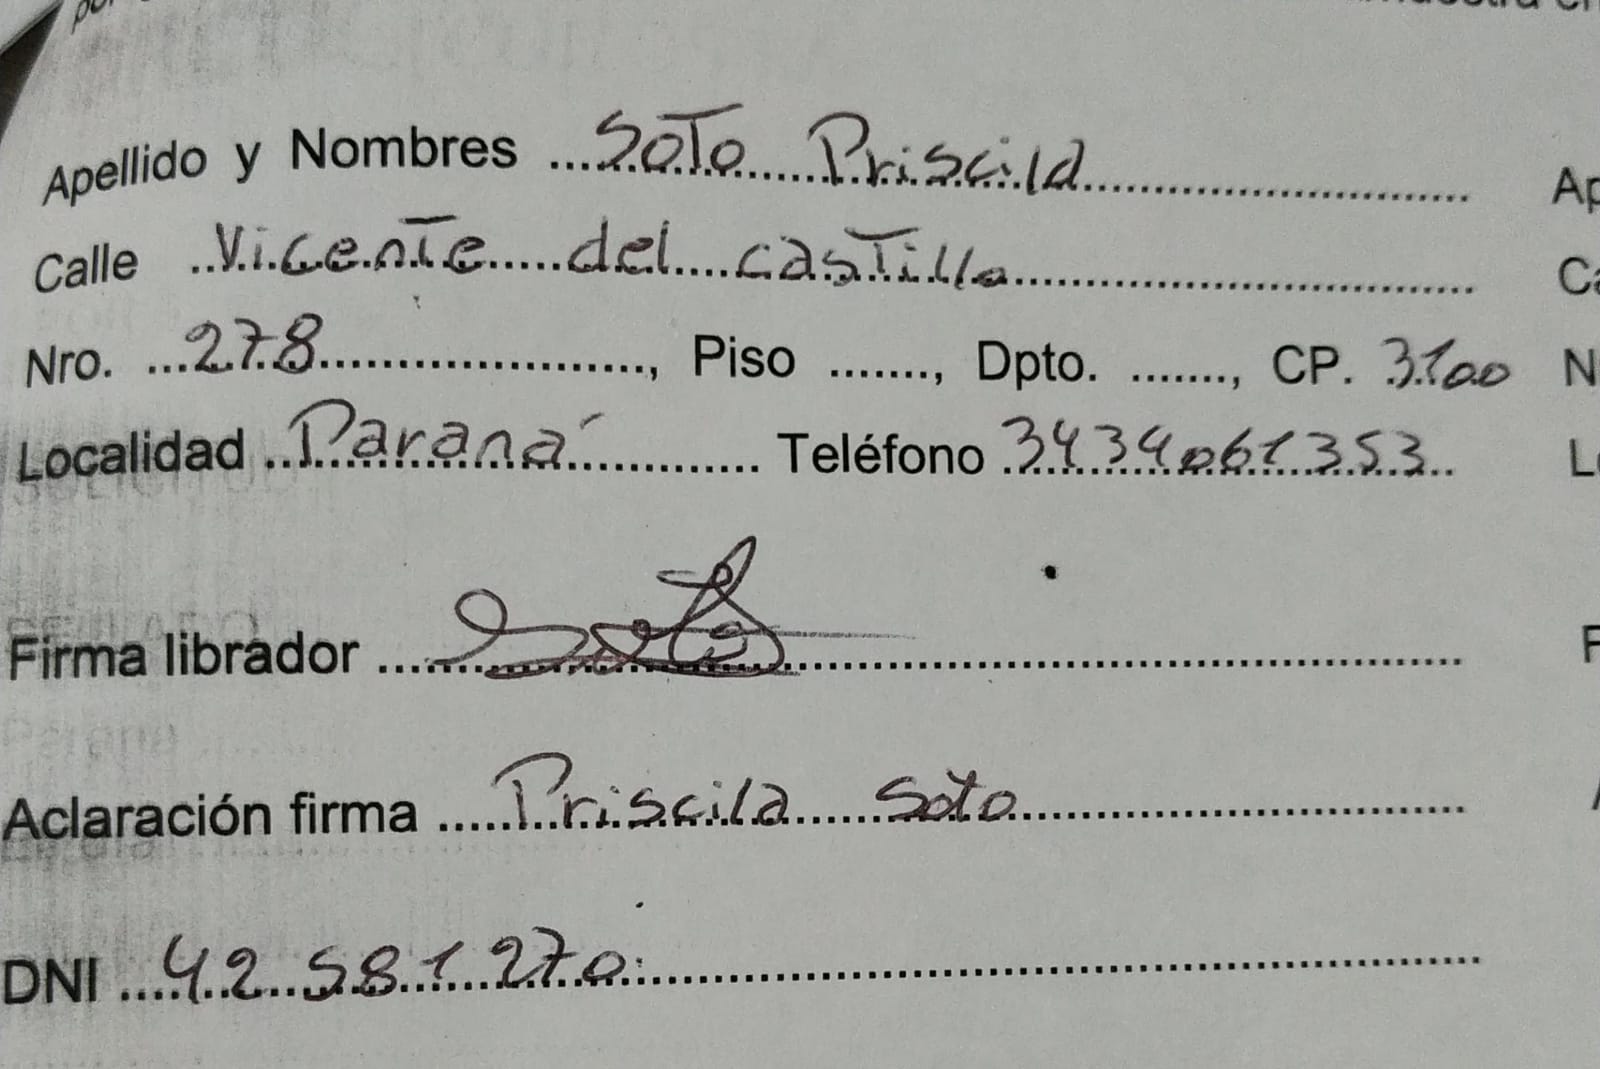 Apellido y Nombres ...Soto Priscila...
Calle ..Vicente del castillo...
Nro. ...278..., Piso ........, Dpto. ........, CP. 3100
Localidad ..Paraná... Teléfono .3434061353..
Firma librador ....Soto...
Aclaración firma ....Priscila Soto...
DNI ....42.581.270...